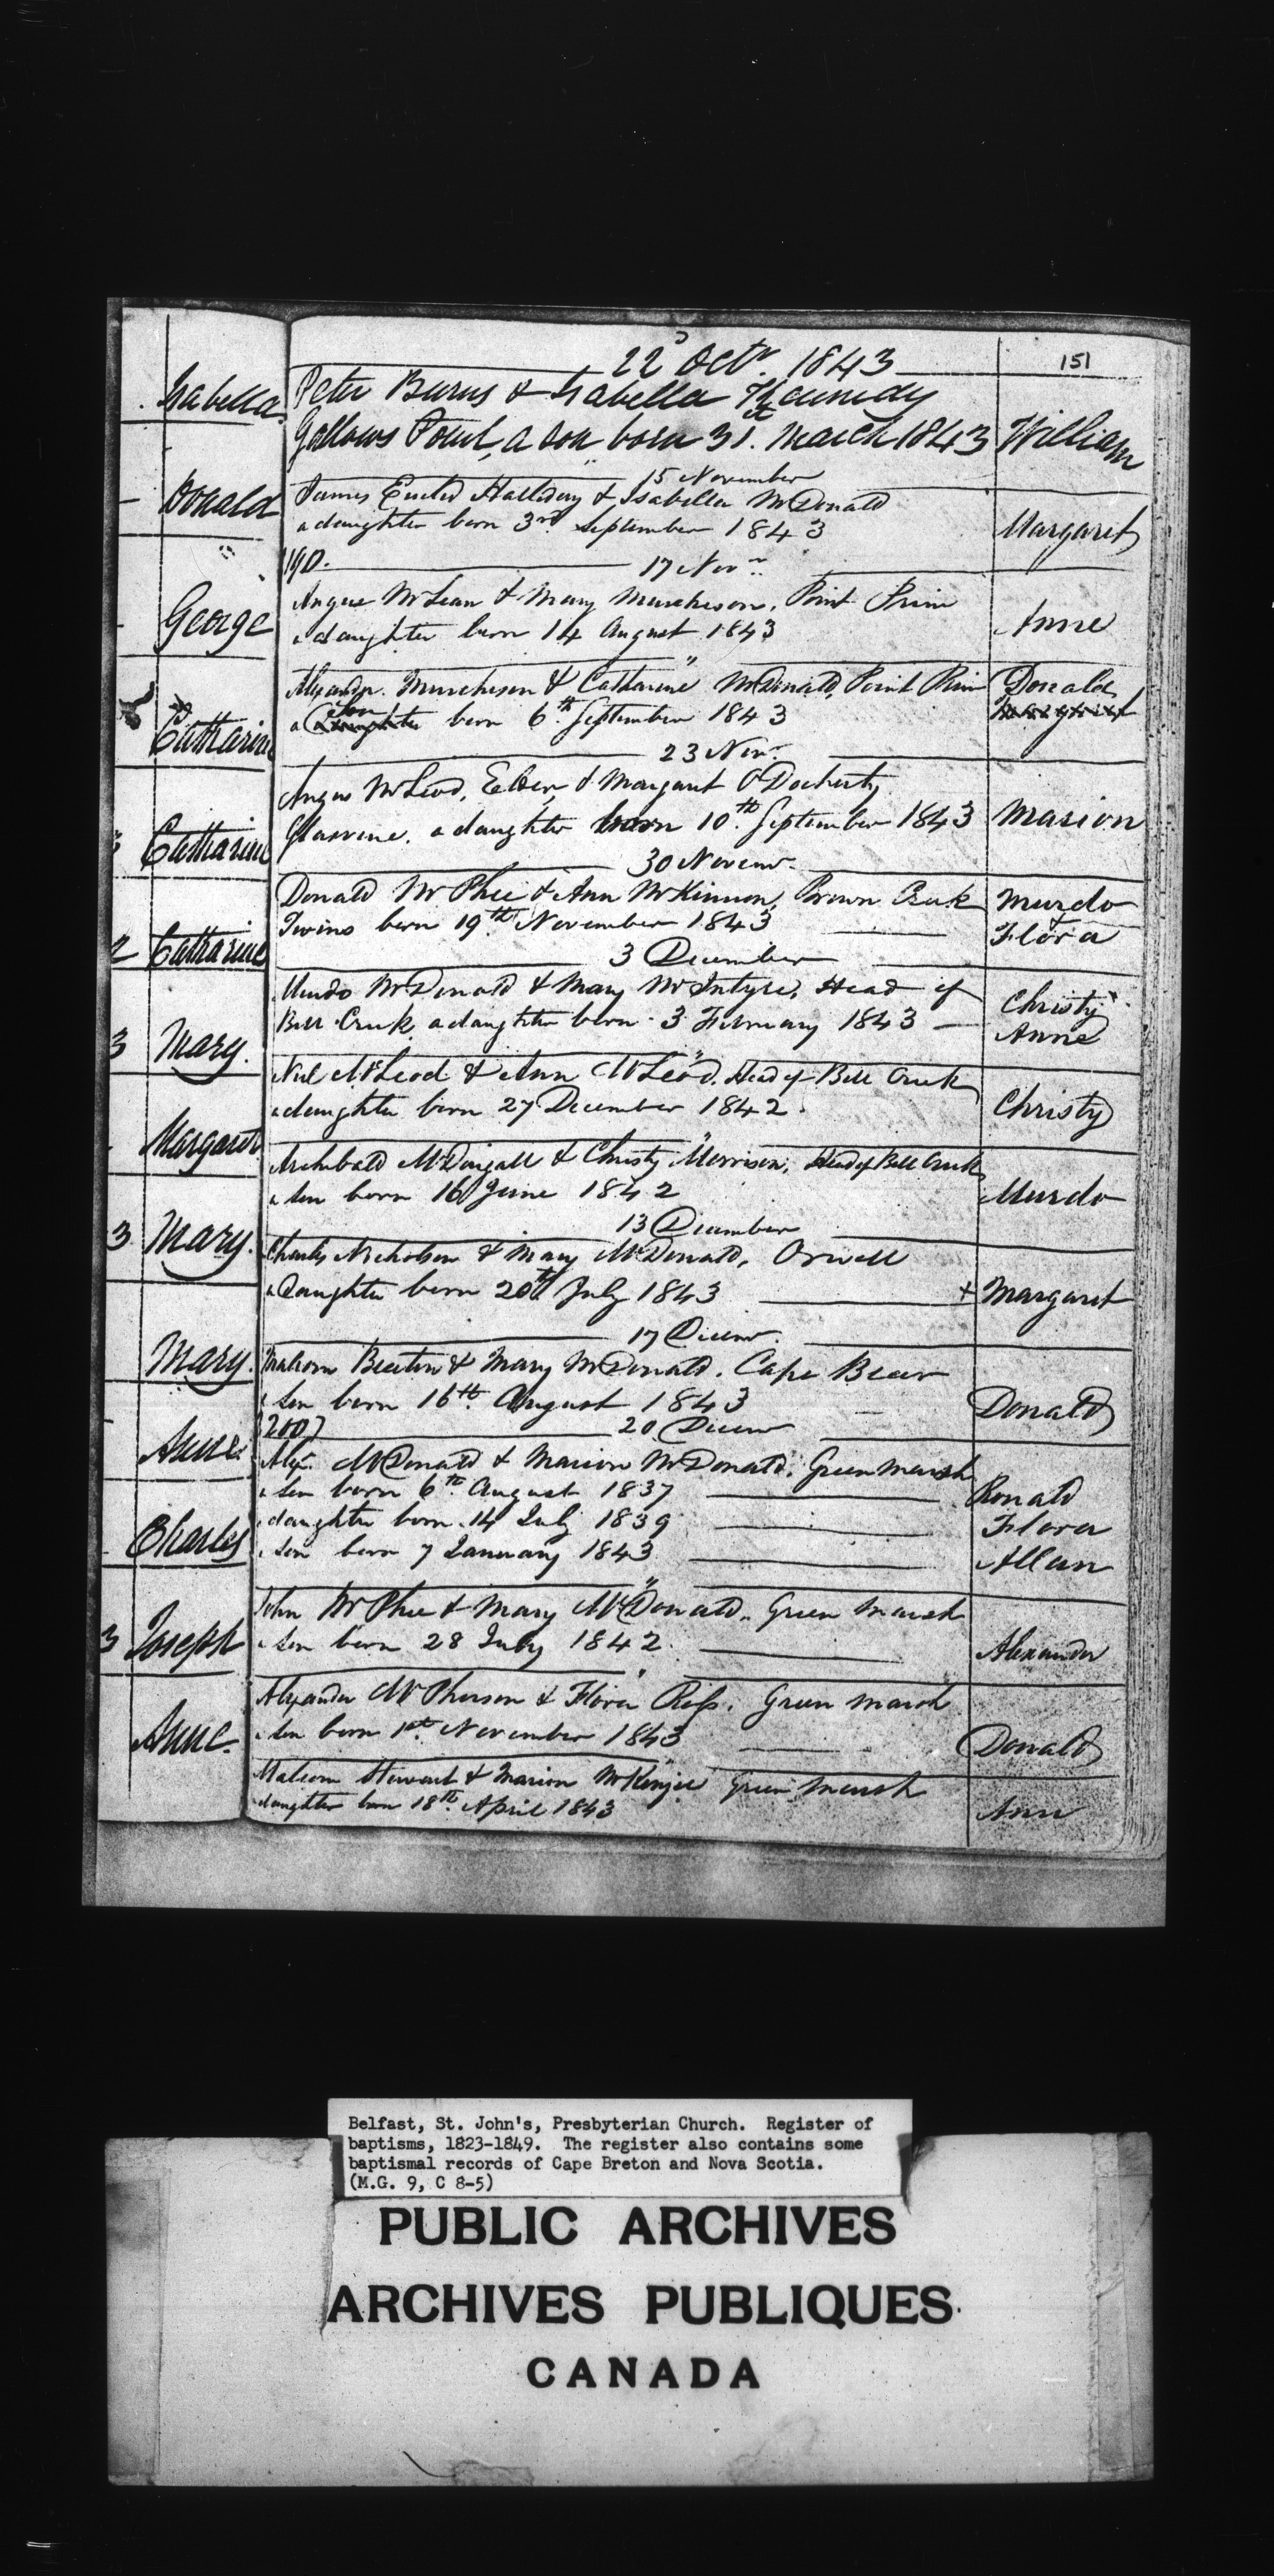 22 Octr. 1843
151
Isabella
Peter Burns & Isabella Kennedy
Gallows Point, a son born 31st. March 1843 William
15 November
Donald
James Halliday & Isabella McDonald
a daughter born 3rd September 1843 Margaret
190.
17 Novr.
George
Angus McLean & Mary Murchison, Point Prim
a daughter born 14 August 1843 Anne
"
Alexandr. Murchison & Catharine McDonald, Point Prim Donald
a Son daughter born 6th. September 1843 Margaret
Catharine
23 Novr.
Angus McLeod, Elder, & Margaret O'Docherty
Glasvine, a daughter born 10th. September 1843 Marion
Catharine
30 Novemr.
Donald McPhee & Ann McKinnon, Brown Creek Murdo
Twins born 19th. November 1843 & Flora
2 Catharine
3 December
Murdo McDonald & Mary McIntyre, Head of Christy
Bell Creek, a daughter born 3 February 1843 Anne
3 Mary.
"
Neil McLeod & Ann McLeod, Head of Bell Creek
a daughter born 27 December 1842. Christy
Margaret
"
Archibald McDougall & Christy Morrison, Head of Bell Creek
a son born 16 June 1842 Murdo
3 Mary.
13 December
Charles Nicholson & Mary McDonald, Orwell
a Daughter born 20th July 1843 + Margaret
17 Decemr.
Mary.
Malcom Beaton & Mary McDonald, Cape Bear
a son born 16th. August 1843 Donald
200
20 Decemr
Anne.
Alexr. McDonald & Marion McDonald, Green Marsh
a son born 6th. August 1837 Ronald
daughter born 14 July 1839 Flora
a son born 7 January 1843 Allan
Charles
"
John McPhee & Mary McDonald, Green Marsh
a son born 28 July 1842. Alexander
3 Joseph
"
Alexander McPherson & Flora Ross, Green Marsh
a son born 1st. November 1843 Donald
Anne.
"
Malcom Stewart & Marion McKenzie Green Marsh
daughter born 18th. April 1843 Ann
Belfast, St. John's, Presbyterian Church. Register of
baptisms, 1823-1849. The register also contains some
baptismal records of Cape Breton and Nova Scotia.
(M.G. 9, C 8-5)
PUBLIC ARCHIVES
ARCHIVES PUBLIQUES
CANADA